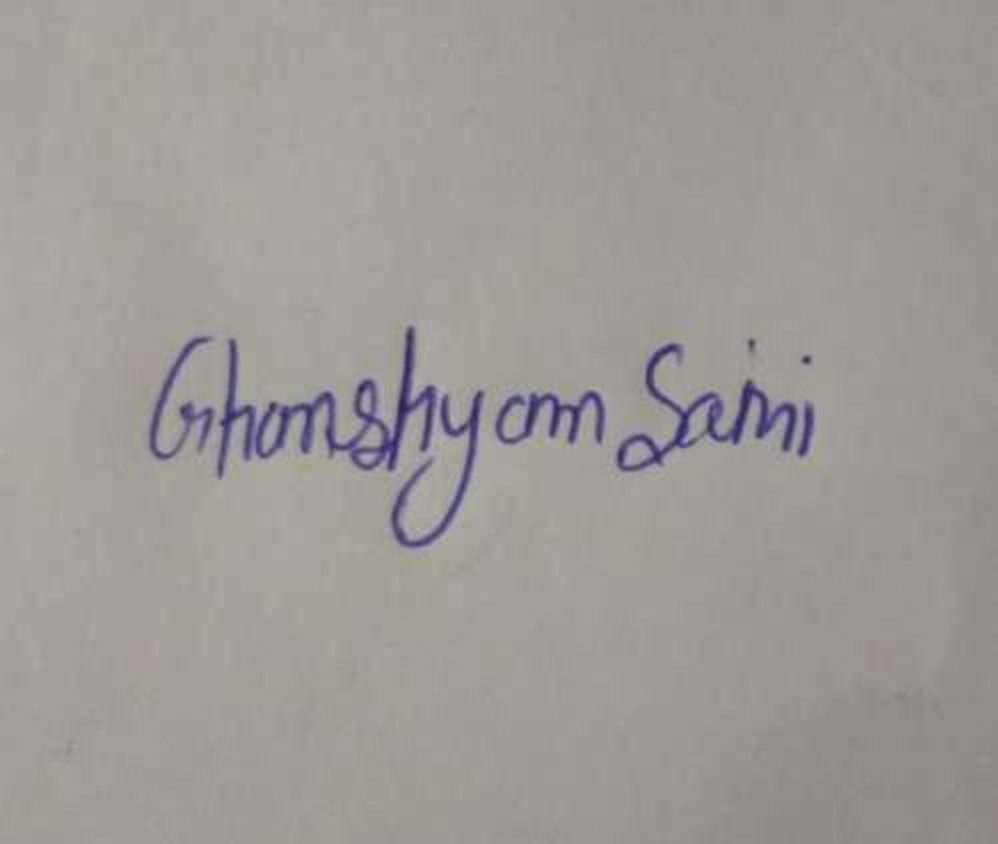 Ghanshyam Saini